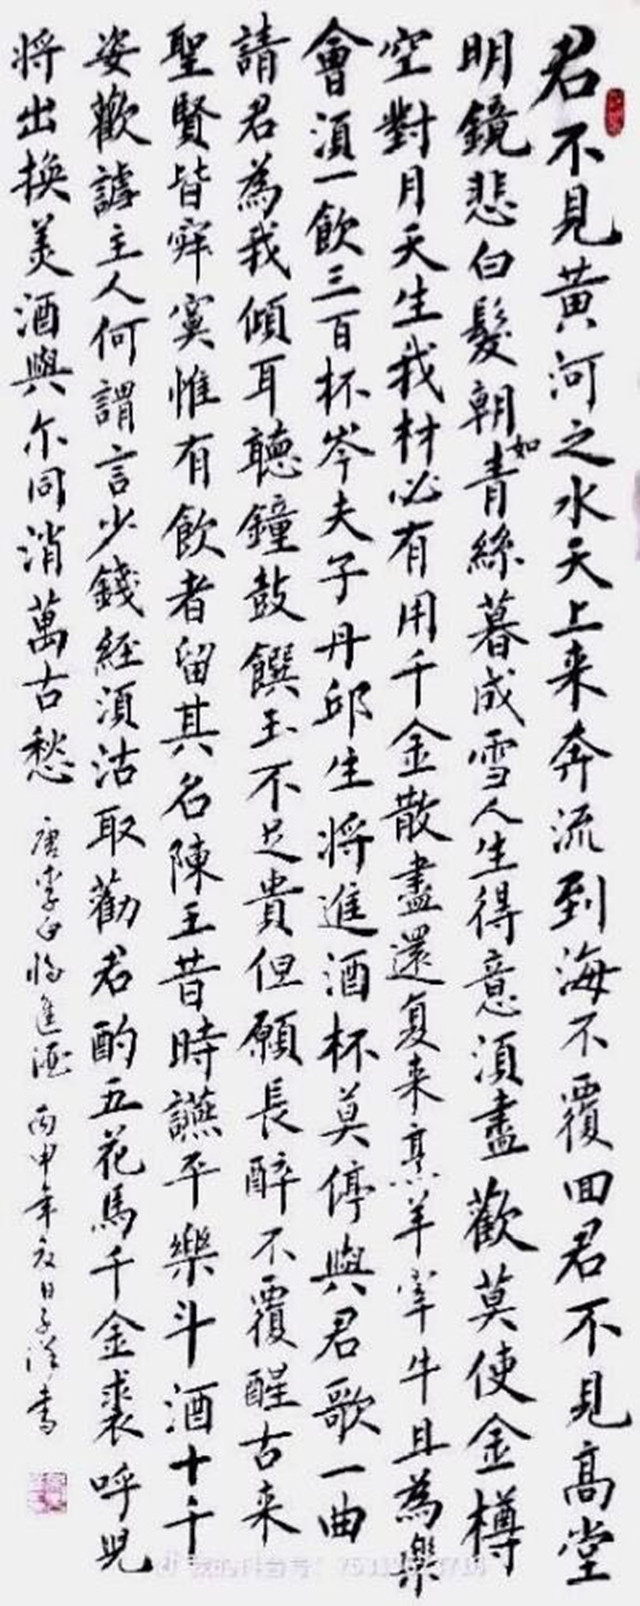 君不見黃河之水天上来奔流到海不覆回君不見高堂
明鏡悲白髮朝如青絲暮成雪人生得意湏盡歡莫使金樽
空對月天生我材必有用千金散盡還复来烹羊宰牛且為樂
會湏一飲三百杯岑夫子丹邱生将進酒杯莫停與君歌一曲
請君為我傾耳聽鐘鼓饌玉不足貴但願長醉不覆醒古来
聖賢皆寂寞惟有飲者留其名陳王昔時讌平樂斗酒十千
姿歡謔主人何謂言少錢經湏沽取勸君酌五花馬千金裘呼兒
将出換美酒與尔同消萬古愁 唐李白将進酒 丙申年夏日子洋書